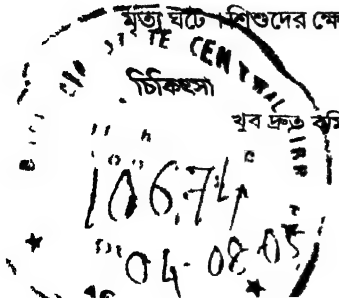 মৃত্যু ঘটে। শিশুদের ক্ষে
STATE CENTRAL
চিকিৎসা
খুব দ্রুত
10674
04-08-05